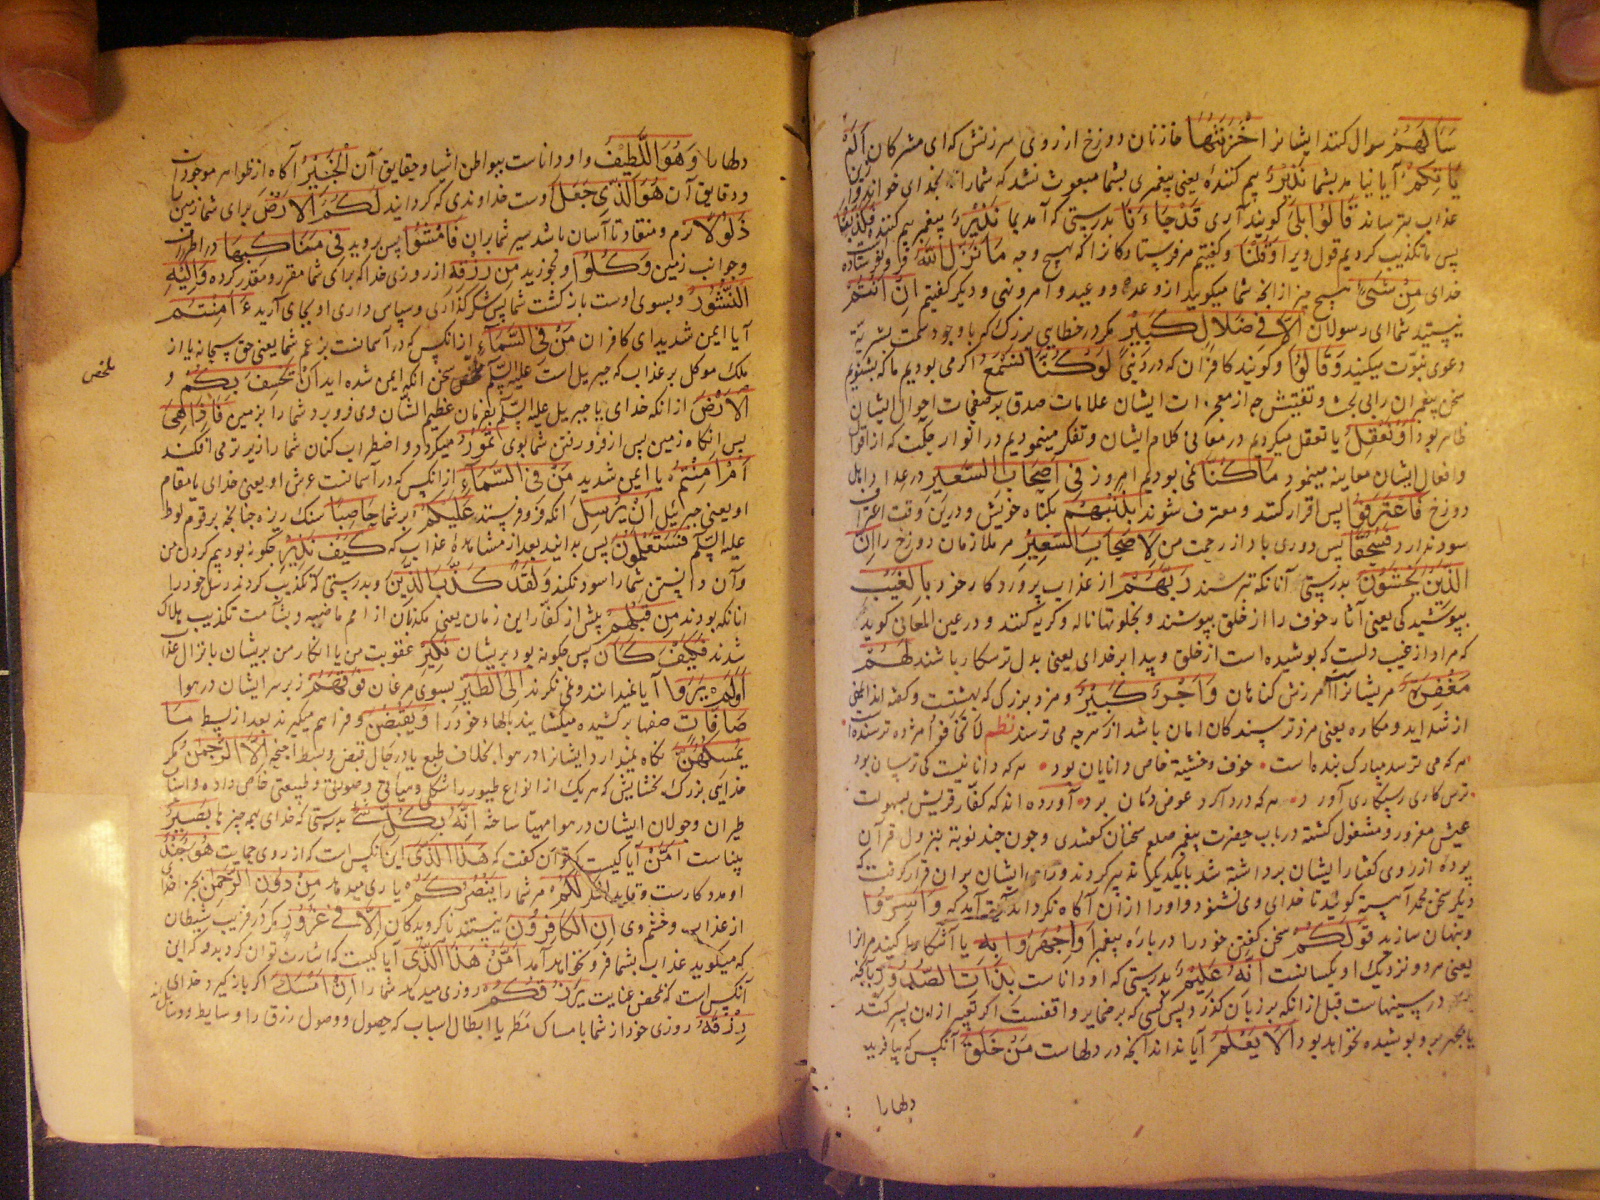 سَاَلَهُمْ سوال کنند ایشانرا خَزَنَتُهَا خازنان دوزخ از روی سرزنش که ای مشرکان اَلَمْ
یَاْتِکُمْ آیا نیامد بشما نَذِیْرٌ بیم کننده یعنی پیغمبری بشما مبعوث نشد که شمارا بخدای خواند و از
عذاب بترساند قَالُوْا بَلٰی گویند آری قَدْ جَاءَنَا بدرستی که آمد بما نَذِیْرٌ پیغمبر بیم کننده فَکَذَّبْنَا
پس ما تکذیب کردیم قول ویرا وَقُلْنَا و گفتیم مر فرستادکانرا که بهیچ وجه مَا نَزَّلَ اللهُ فرو نفرستاده
خدای مِنْ شَیْءٍ هیچ چیز از آنچه شما میکویید از وعده و وعید و امر و نهی و دیکر کفتیم اِنْ اَنْتُمْ
نیستید شما ای رسولان اِلَّا فِیْ ضَلَالٍ کَبِیْرٍ مکر در خطایی بزرک که با وجود سمت بشریة
دعوی نبوّت میکنید وَقَالُوْا و کویند کافران که در دنیی لَوْ کُنَّا نَسْمَعُ اکر می بودیم ما که بشنویم
سخن پیغمبران را بی بحث و تفتیش چه از معجزات ایشان علامات صدق بر صفحات احوال ایشان
ظاهر بود اَوْ نَعْقِلُ یا تعقل میکردیم در معانی کلام ایشان و تفکر مینمودیم در انوار حکمت که از اقوال
و افعال ایشان معاینه مینمود مَا کُنَّا نمی بودیم امروز فِیْ اَصْحَابِ السَّعِیْرِ در عداد اهل
دوزخ فَاعْتَرَفُوْا پس اقرار کنند و معترف شوند بِذَنْبِهِمْ بکناه خویش و درین وقت اعتراف
سود ندارد فَسُحْقًا پس دوری باد از رحمت من لِاَصْحَابِ السَّعِیْرِ مر ملازمان دوزخ را اِنَّ
الَّذِیْنَ یَخْشَوْنَ بدرستی آنانکه ترسند رَبَّهُمْ از عذاب پروردکار خود بِالْغَیْبِ
بپوشیدکی یعنی آثار خوف را از خلق بپوشند و بخلوتها ناله و کریه کنند و در عین المعانی کوید
که مراد از غیب دلست که پوشیده است از خلق و پیدا بر خدای یعنی بدل ترسکار باشند لَهُمْ
مَغْفِرَةٌ مر ایشانرا آمرزش کناهان وَ اَجْرٌ کَبِیْرٌ و مزد بزرک که بهشتست و کفته اند ایمنی
از شداید و مکاره یعنی مزد ترسندکان امان باشد از هرچه می ترسند نظم لَا تَخَافُوْا مژده ترسنده است
هرکه می ترسد مبارک بنده است خوف و خشیة خاص دانایان بود هرکه دانا نیست کی ترسان بود
ترسکاری رستکاری آورد هرکه درد آرد عوض درمان برد آورده اند که کفار قریش بسهولت
عیش مغرور و مشغول کشته در باب حضرت پیغمبر صلعم سخنان کفتندی و چون چند نوبة بنزول قرآن
پرده از روی کفتار ایشان برداشته شد با یکدیکر تدبیر کردند و رای ایشان بران قرار کرفت که
دیکر سخن محمد آهسته کوئید تا خدای وی نشنود و او را از ان آکاه نکرداند آیت آمد که وَاَسِرُّوْا
و پنهان سازید قَوْلَکُمْ سخن کفتن خود را درباره پیغمبر اَوِ اجْهَرُوْا بِهٖ یا آشکارا کنید مر انرا
یعنی هر دو نزدیک او یکسانست اِنَّهٗ عَلِیْمٌ بدرستی که او داناست بِذَاتِ الصُّدُوْرِ بآنچه
در سینهاست قبل از آنکه بر زبان کذرد پس کسی که بر ضمایر واقفست اکر تعبیر از ان بسر کنند
یا بجهر برو پوشیده نخواهد بود اَلَا یَعْلَمُ آیا نداند آنچه در دلهاست مَنْ خَلَقَ آنکس که بیافرید
دلهارا
دلهارا وَهُوَ اللَّطِیْفُ و او داناست ببواطن اشیا و حقایق آن الْخَبِیْرُ آکاه از ظواهر موجودات
و دقایق آن هُوَ الَّذِیْ جَعَلَ اوست خداوندی که کردانید لَکُمُ الْاَرْضَ برای شما زمین را
ذَلُوْلًا نرم و منقاد تا آسان باشد سیر شما بران فَامْشُوْا پس بروید فِیْ مَنَاکِبِهَا در اطراف
و جوانب زمین وَکُلُوْا و بخورید مِنْ رِزْقِهٖ از روزی خدا که برای شما مقرر و مقدر کرده وَاِلَیْهِ
النُّشُوْرُ و بسوی اوست بازکشت شما پس شکرکذاری و سپاس داری او بجای آرید ءَاَمِنْتُمْ
آیا ایمن شدید ای کافران مَنْ فِی السَّمَآءِ از انکس که در آسمانست بزعم شما یعنی حق سبحانه یا از
ملک موکل بر عذاب که جبریل است علیه السّلم ملخص سخن آنکه ایمن شده اید اَنْ یَخْسِفَ بِکُمْ
الْاَرْضَ از آنکه خدای یا جبریل علیه السّلم بفرمان عظیم الشان وی فرو برد شمارا بزمین فَاِذَا هِیَ
پس انکاه زمین پس از فرو رفتن شما بوی تَمُوْرُ میکردد و اضطراب کنان شما را زیرتر می افکند
اَمْ اَمِنْتُمْ یا ایمن شدید مَنْ فِی السَّمَآءِ از انکس که در آسمانست عرش او یعنی خدای یا مقام
او یعنی جبریل اَنْ یُرْسِلَ آنکه فرو فرستد عَلَیْکُمْ بر شما حَاصِبًا سنک ریزه چنانچه بر قوم لوط
علیه السّلم فَسَتَعْلَمُوْنَ پس بدانید بعد از مشاهدهٔ عذاب که کَیْفَ نَذِیْرِ چکونه بود بیم کردن من
و آن دانستن شمارا سود نکند وَلَقَدْ کَذَّبَ الَّذِیْنَ و بدرستی که تکذیب کردند رسل خود را
آنانکه بودند مِنْ قَبْلِهِمْ پیش از کفار این زمان یعنی مکذبان از امم ماضیه و بشآمت تکذیب هلاک
شدند فَکَیْفَ کَانَ پس چکونه بود بریشان نَکِیْرِ عقوبت من یا انکار من بریشان بانزال عذاب
اَوَلَمْ یَرَوْا آیا نمیدانند و نمی نکرند اِلَی الطَّیْرِ بسوی مرغان فَوْقَهُمْ زبر سر ایشان در هوا
صَافَّاتٍ صفها برکشیده میکشایند بالهاء خود را وَیَقْبِضْنَ و فراهم میکیرند بعد از بسط مَا
یُمْسِکُهُنَّ نکاه نمیدارد ایشانرا در هوا بخلاف طبع یا در حال قبض و بسط اجنحه اِلَّا الرَّحْمٰنُ مکر
خدای بزرک بخشایش که هر یک از انواع طیور را شکلی و هیأتی و طبیعتی خاص داده و اسباب
طیران و جولان ایشان در هوا مهیا ساخته اِنَّهٗ بِکُلِّ شَیْءٍ بدرستی که خدای بهمه چیزها بَصِیْرٌ
بیناست اَمَّنْ آیا کیست که توان کفت که هٰذَا الَّذِیْ این آنکس است که از روی حمایت هُوَ جُنْدٌ
او مددکارست لَکُمْ مر شمارا یَنْصُرُکُمْ یاری میدهد مِنْ دُوْنِ الرَّحْمٰنِ بجز خدا
از عذاب و خشم وی اِنِ الْکَافِرُوْنَ نیستند ناکرویدکان اِلَّا فِیْ غُرُوْرٍ مکر در فریب شیطان
که میکوید عذاب بشما فرو نخواهد آمد اَمَّنْ هٰذَا الَّذِیْ آیا کیست که اشارت توان کرد بدو که این
آنکس است که بمحض عنایت یَرْزُقُکُمْ روزی میدهد شمارا اِنْ اَمْسَکَ اکر باز کیرد خدای
رِزْقَهٗ روزی خود از شما بامساک مطر یا ابطال اسباب که حصول و وصول رزق را وسایط و وسایل‌اند
ملخص